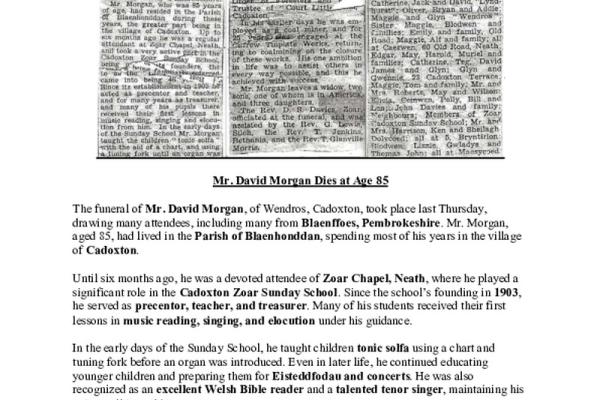 Mr. Morgan, who was 85 years
of age, had resided in the Parish
of Blaenhonddan during these
years, the greater part being in
the village of Cadoxton. Up to
six months ago he was a regular
attendant at Zoar Chapel, Neath,
and took a very active part in the
Cadoxton Zoar Sunday School,
being
came into being
Since its establishment in 1903 he
acted as precentor and teacher,
and for many years as treasurer,
and many of his pupils there
received their first lessons in
music reading, singing, and elocu-
tion from him. In the early days
of the Sunday School Mr. Morgan
taught the children "tonic solfa"
with the aid of a chart, and using
a tuning fork until an organ was
Trustee of "Court Little
Cadoxton.
In his earlier days he was em-
ployed as a coal miner, and for
25 years was engaged at the
Tinplate Works, return-
ing to coalmining on the closure
of these works. His one ambition
in life was to assist others in
every way possible, and this he
achieved with success.
Mr. Morgan leaves a widow, two
sons, one of whom is in America,
and three daughters.
The Rev. D. R. Zoar,
officiated at the funeral, and was
assisted by the Rev. G. Lewis,
the Rev. T. Jenkins,
Bethania, and the Rev. T. Glanville
Morris.
Catherine, Jack and David, "Lynd-
hurst"; Oliver, Bryan and Addie;
Maggie and Glyn "Wendros"
Sister, Maggie, Blodwen and
Families; Emily and family, Old
Road; Maggie, Alf and family; All
at Caeswen, 69 Old Road, Neath,
Edgar, May, Harold, Muriel and
families; Catherine, Teg, David
James and Glyn; Glyn and
Gwennie, 23 Cadoxton Terrace,
Maggie, Tom and family; Mr. and
Mrs. Roberts, May and Wilson;
Elvis, Ceinwen, Polly, Bill and
Lon; John Davies and family
Neighbours; Members of Zoar
Cadoxton Sunday School; Mr. and
Mrs. Harrison, Ken and Sheilagh
all at 5, Bryntirion
Blodwen, Lizzie, Gwladys and
Thomas John; all at Maesyced
Mr. David Morgan Dies at Age 85
The funeral of Mr. David Morgan, of Wendros, Cadoxton, took place last Thursday,
drawing many attendees, including many from Blaenffoes, Pembrokeshire. Mr. Morgan,
aged 85, had lived in the Parish of Blaenhonddan, spending most of his years in the village
of Cadoxton.
Until six months ago, he was a devoted attendee of Zoar Chapel, Neath, where he played a
significant role in the Cadoxton Zoar Sunday School. Since the school's founding in 1903,
he served as precentor, teacher, and treasurer. Many of his students received their first
lessons in music reading, singing, and elocution under his guidance.
In the early days of the Sunday School, he taught children tonic solfa using a chart and
tuning fork before an organ was introduced. Even in later life, he continued educating
younger children and preparing them for Eisteddfodau and concerts. He was also
recognized as an excellent Welsh Bible reader and a talented tenor singer, maintaining his